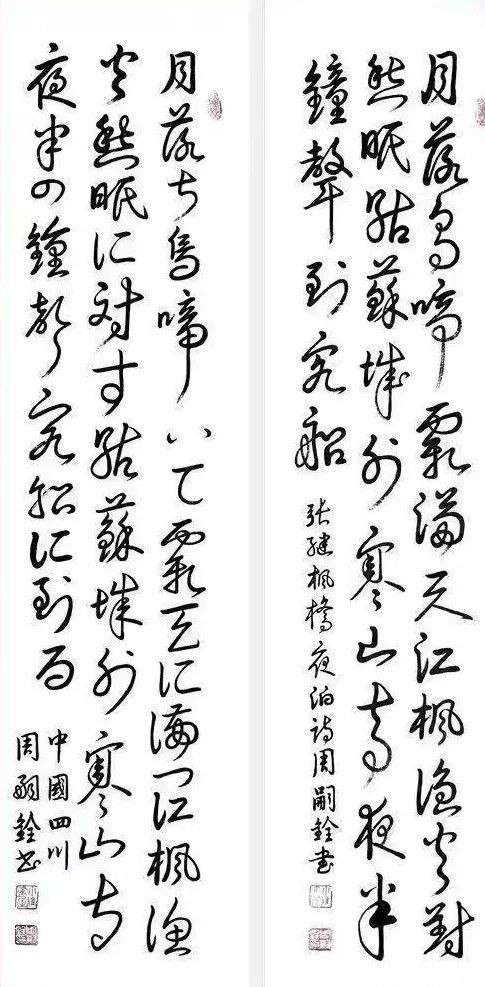 月落烏啼霜滿天江楓漁火對
愁眠姑蘇城外寒山寺夜半
鐘聲到客船
張継楓橋夜泊詩周嗣銓書
月落ち烏啼いて霜天に満つ江楓漁
火愁眠に対す姑蘇城外寒山寺
夜半の鐘声客船に到る
中國四川
周嗣銓書